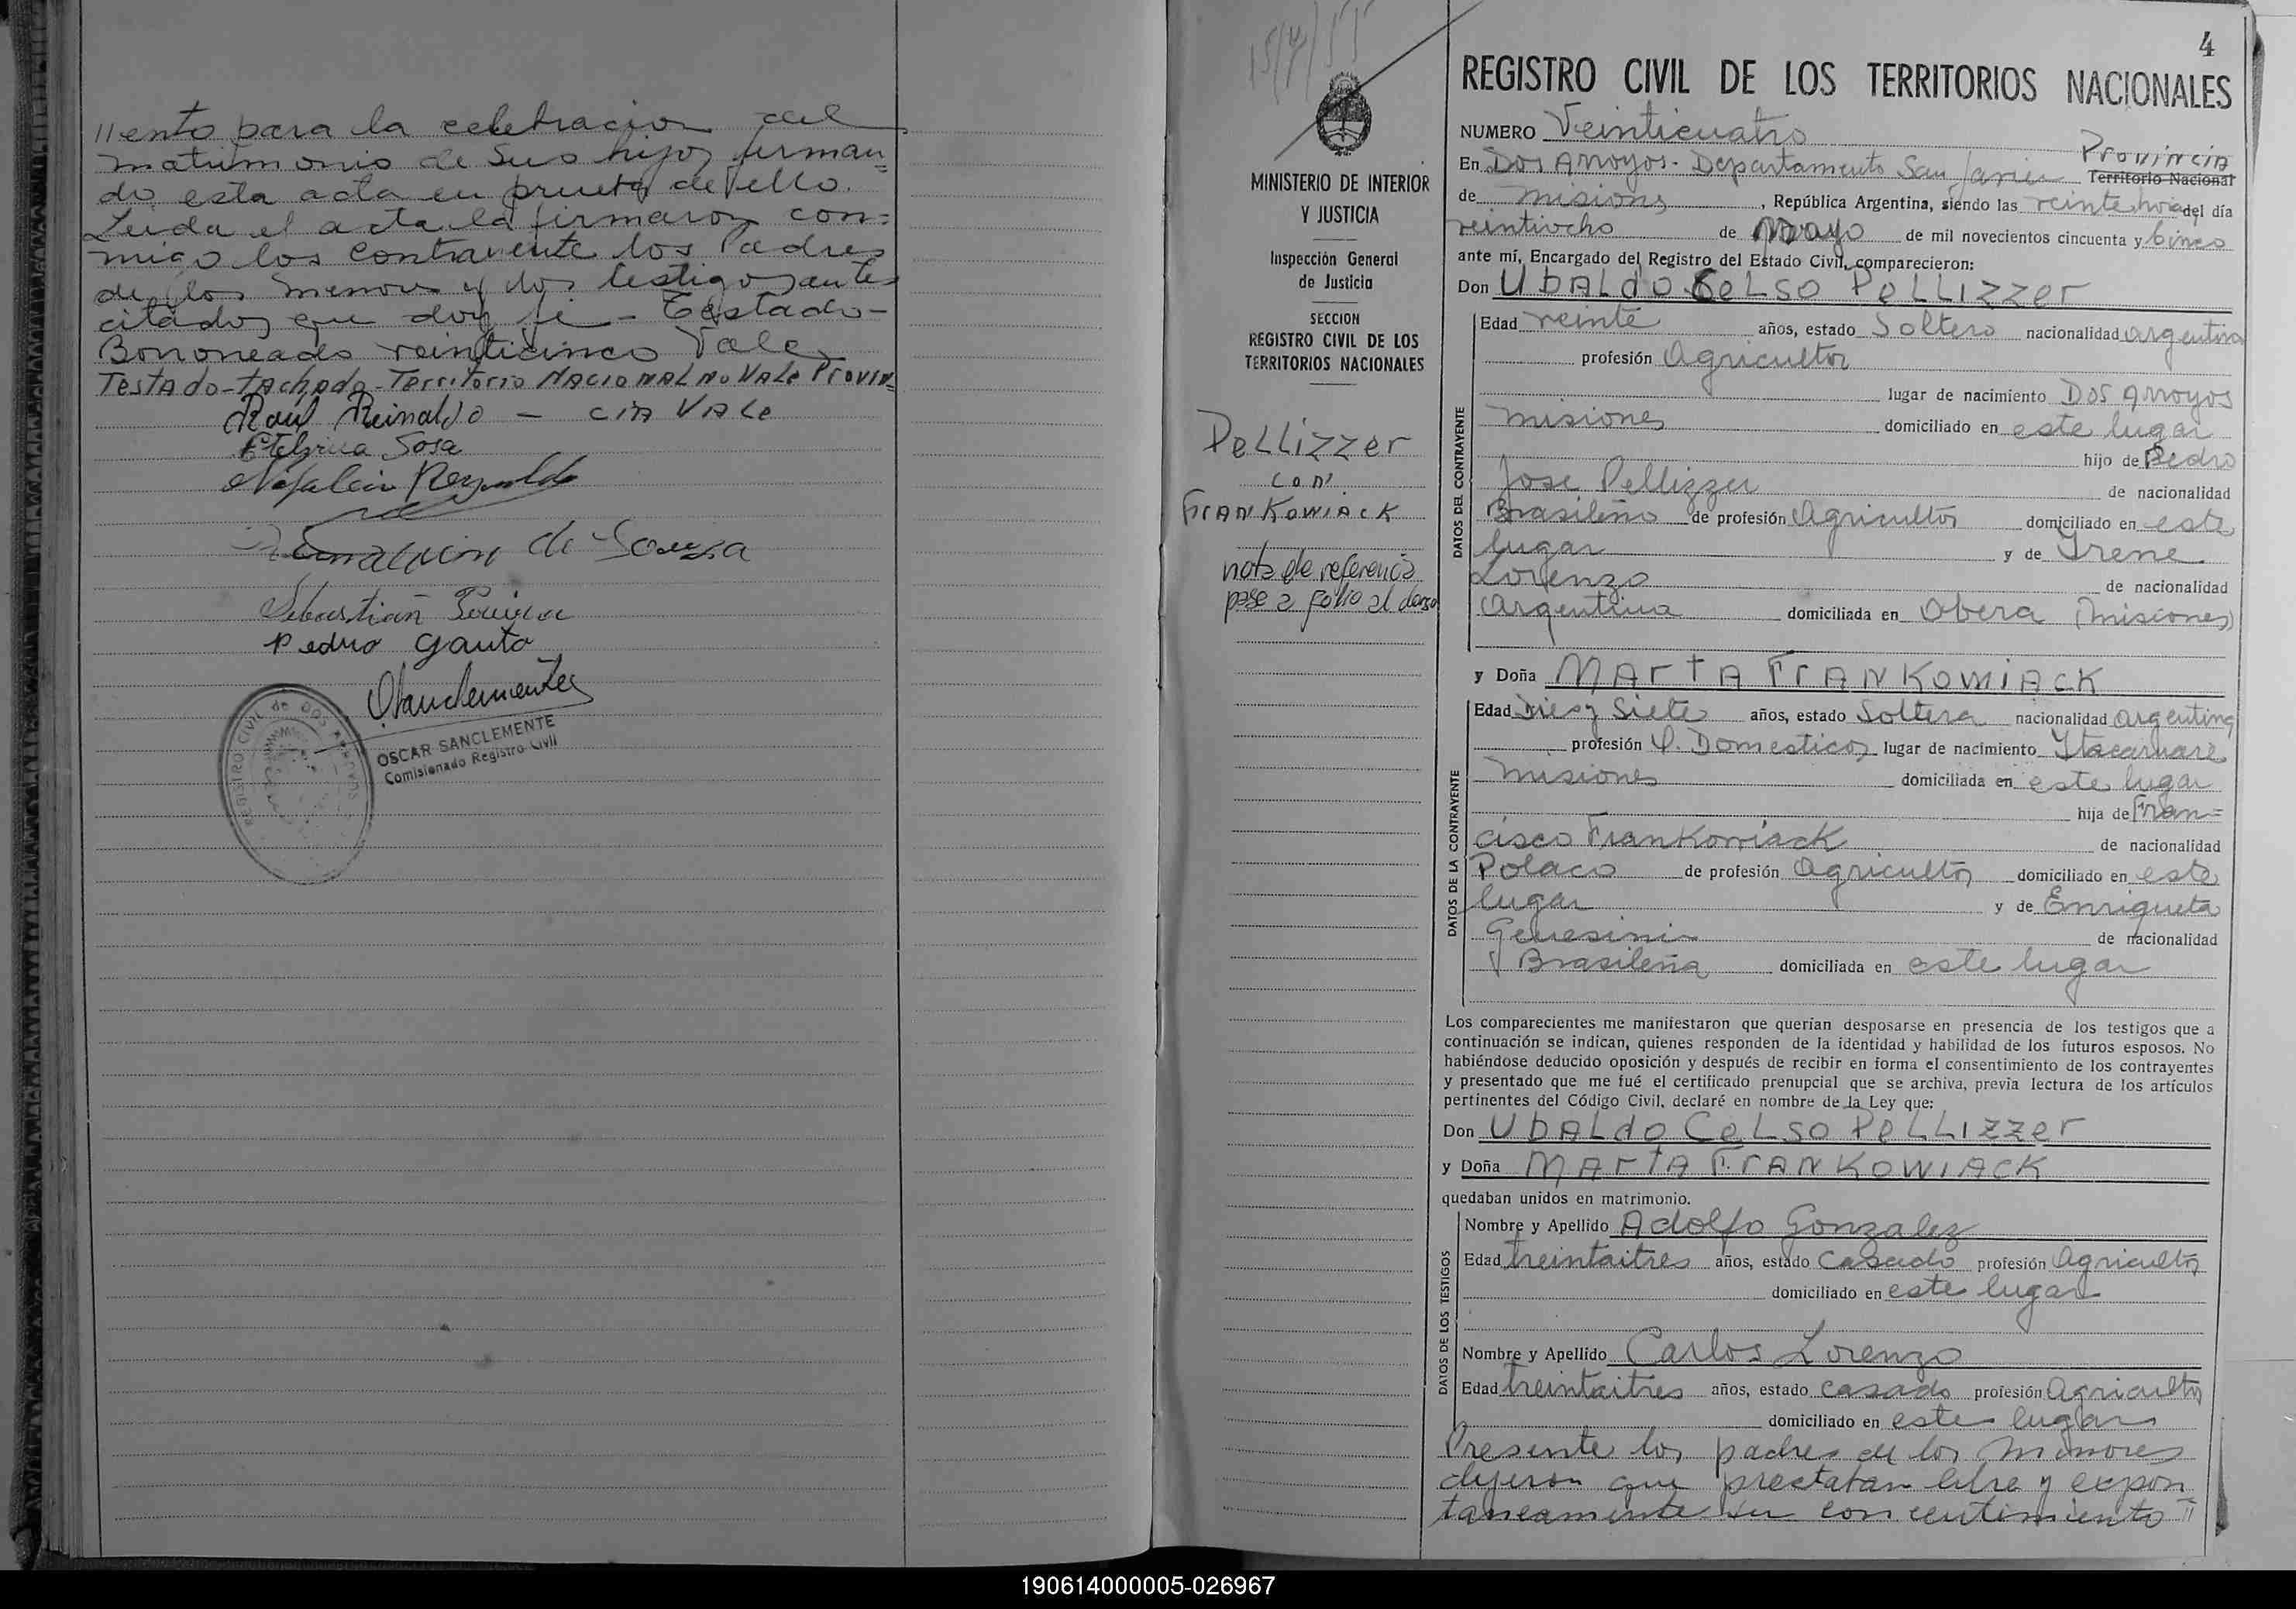 llento para la celebracion del
matrimonio de Sus hijos firman=
do esta acta en prueba de ello.
Leida el acta la firmaron con=
migo los contrayente los Padres
de los menores y los testigos antes
citados que doy fe - Testado -
Borroneado veinticinco Vale
Testado-tachado-Territorio NACIONAL No VALe Provin=
Raul Reinaldo - CIA VALe
Etelvina Sosa
Reynaldo
de Souza
Sebastián
Pedro Gauto
OSCAR SANCLEMENTE
Comisionado Registro Civil
REGISTRO CIVIL de DOS ARROYOS
15/7/55
4
REGISTRO CIVIL DE LOS TERRITORIOS NACIONALES
MINISTERIO DE INTERIOR
Y JUSTICIA
Inspección General
de Justicia
SECCION
REGISTRO CIVIL DE LOS
TERRITORIOS NACIONALES
PeLLizzer
con
FrANKowiAcK
nota de referencia
pase a folio al dorso
NUMERO Veinticuatro
Provincia
En Dos Arroyos. Departamento San Javier Territorio Nacional
de misiones, República Argentina, siendo las veinte horas del día
veintiocho de Mayo de mil novecientos cincuenta y Cinco
ante mí, Encargado del Registro del Estado Civil, comparecieron:
Don UbALdo CeLso PeLLIzzer
DATOS DEL CONTRAYENTE
Edad veinte años, estado Soltero nacionalidad argentina
profesión Agricultor
lugar de nacimiento Dos Arroyos
misiones domiciliado en este lugar
hijo de Pedro
Jose Pellizzer de nacionalidad
Brasileño de profesión Agricultor domiciliado en este
lugar y de Irene
Lorenzo de nacionalidad
Argentina domiciliada en Obera (misiones)
y Doña MArtA FrANKowiAcK
DATOS DE LA CONTRAYENTE
Edad Dies y Siete años, estado Soltera nacionalidad argentina
profesión Q. Domesticos lugar de nacimiento Itacaruare
misiones domiciliada en este lugar
hija de Fran=
cisco Frankowiack de nacionalidad
Polaco de profesión Agricultor domiciliado en este
lugar y de Enriqueta
Genesini de nacionalidad
Brasileña domiciliada en este lugar
Los comparecientes me manifestaron que querían desposarse en presencia de los testigos que a
continuación se indican, quienes responden de la identidad y habilidad de los futuros esposos. No
habiéndose deducido oposición y después de recibir en forma el consentimiento de los contrayentes
y presentado que me fué el certificado prenupcial que se archiva, previa lectura de los artículos
pertinentes del Código Civil, declaré en nombre de la Ley que:
Don UbALdo CeLso PeLLIzzer
y Doña MArTA FrANKowiAcK
quedaban unidos en matrimonio.
DATOS DE LOS TESTIGOS
Nombre y Apellido Adolfo Gonzalez
Edad treintaitres años, estado Casado profesión Agricultor
domiciliado en este lugar
Nombre y Apellido Carlos Lorenzo
Edad treintaitres años, estado casado profesión Agricultor
domiciliado en este lugar
Presente los padres de los menores
dijeron que prestaban libre y expon
taneamente su consentimiento ll
190614000005-026967